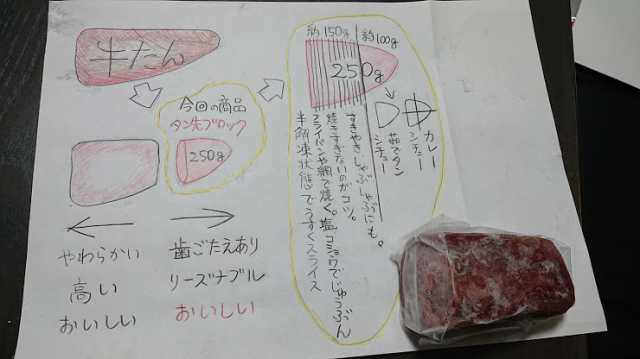 牛たん
今回の商品
タン先ブロック
250g
やわらかい
高い
おいしい
歯ごたえあり
リーズナブル
おいしい
約150g
約100g
250g
カレー
シチュー
茹でタン
シチュー
すきやきしゃぶしゃぶにも。
焼きすぎないのがコツ。
フライパンや網で焼く。塩コショウでじゅうぶん
半解凍状態でうすくスライス